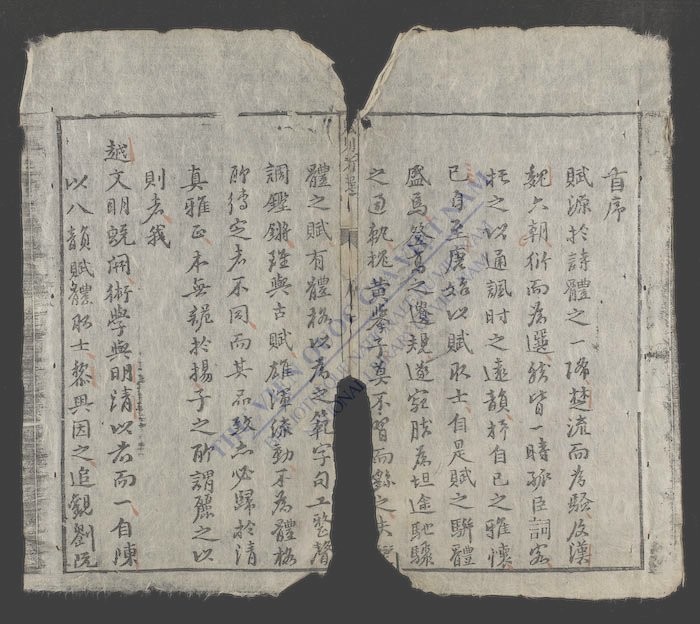 首序
賦源於詩體之一降楚流而為騷及漢
魏六朝衍而為選然皆一時孤臣詞客
於之以通諷时之遠韻抒自己之雅懷
已自至唐始以賦取士自是賦之駢體
盛焉登高之遺規遂宛肰為坦途馳驟
之軌黃峯子莫不習而
體之賦有體格以為之範字句工整聲
調鏗鏘雖與古賦雄渾流動不為體格
所縛定者不同而其品致亦必歸於清
真雅正本無詭於揚子之所謂麗之以
則者我
越文明蛻開術學與明清以為而一自陳
以八韻賦體取士黎興因之追觀劉阮
THƯ VIỆN QUỐC GIA VIỆT NAM
NATIONAL LIBRARY OF VIETNAM